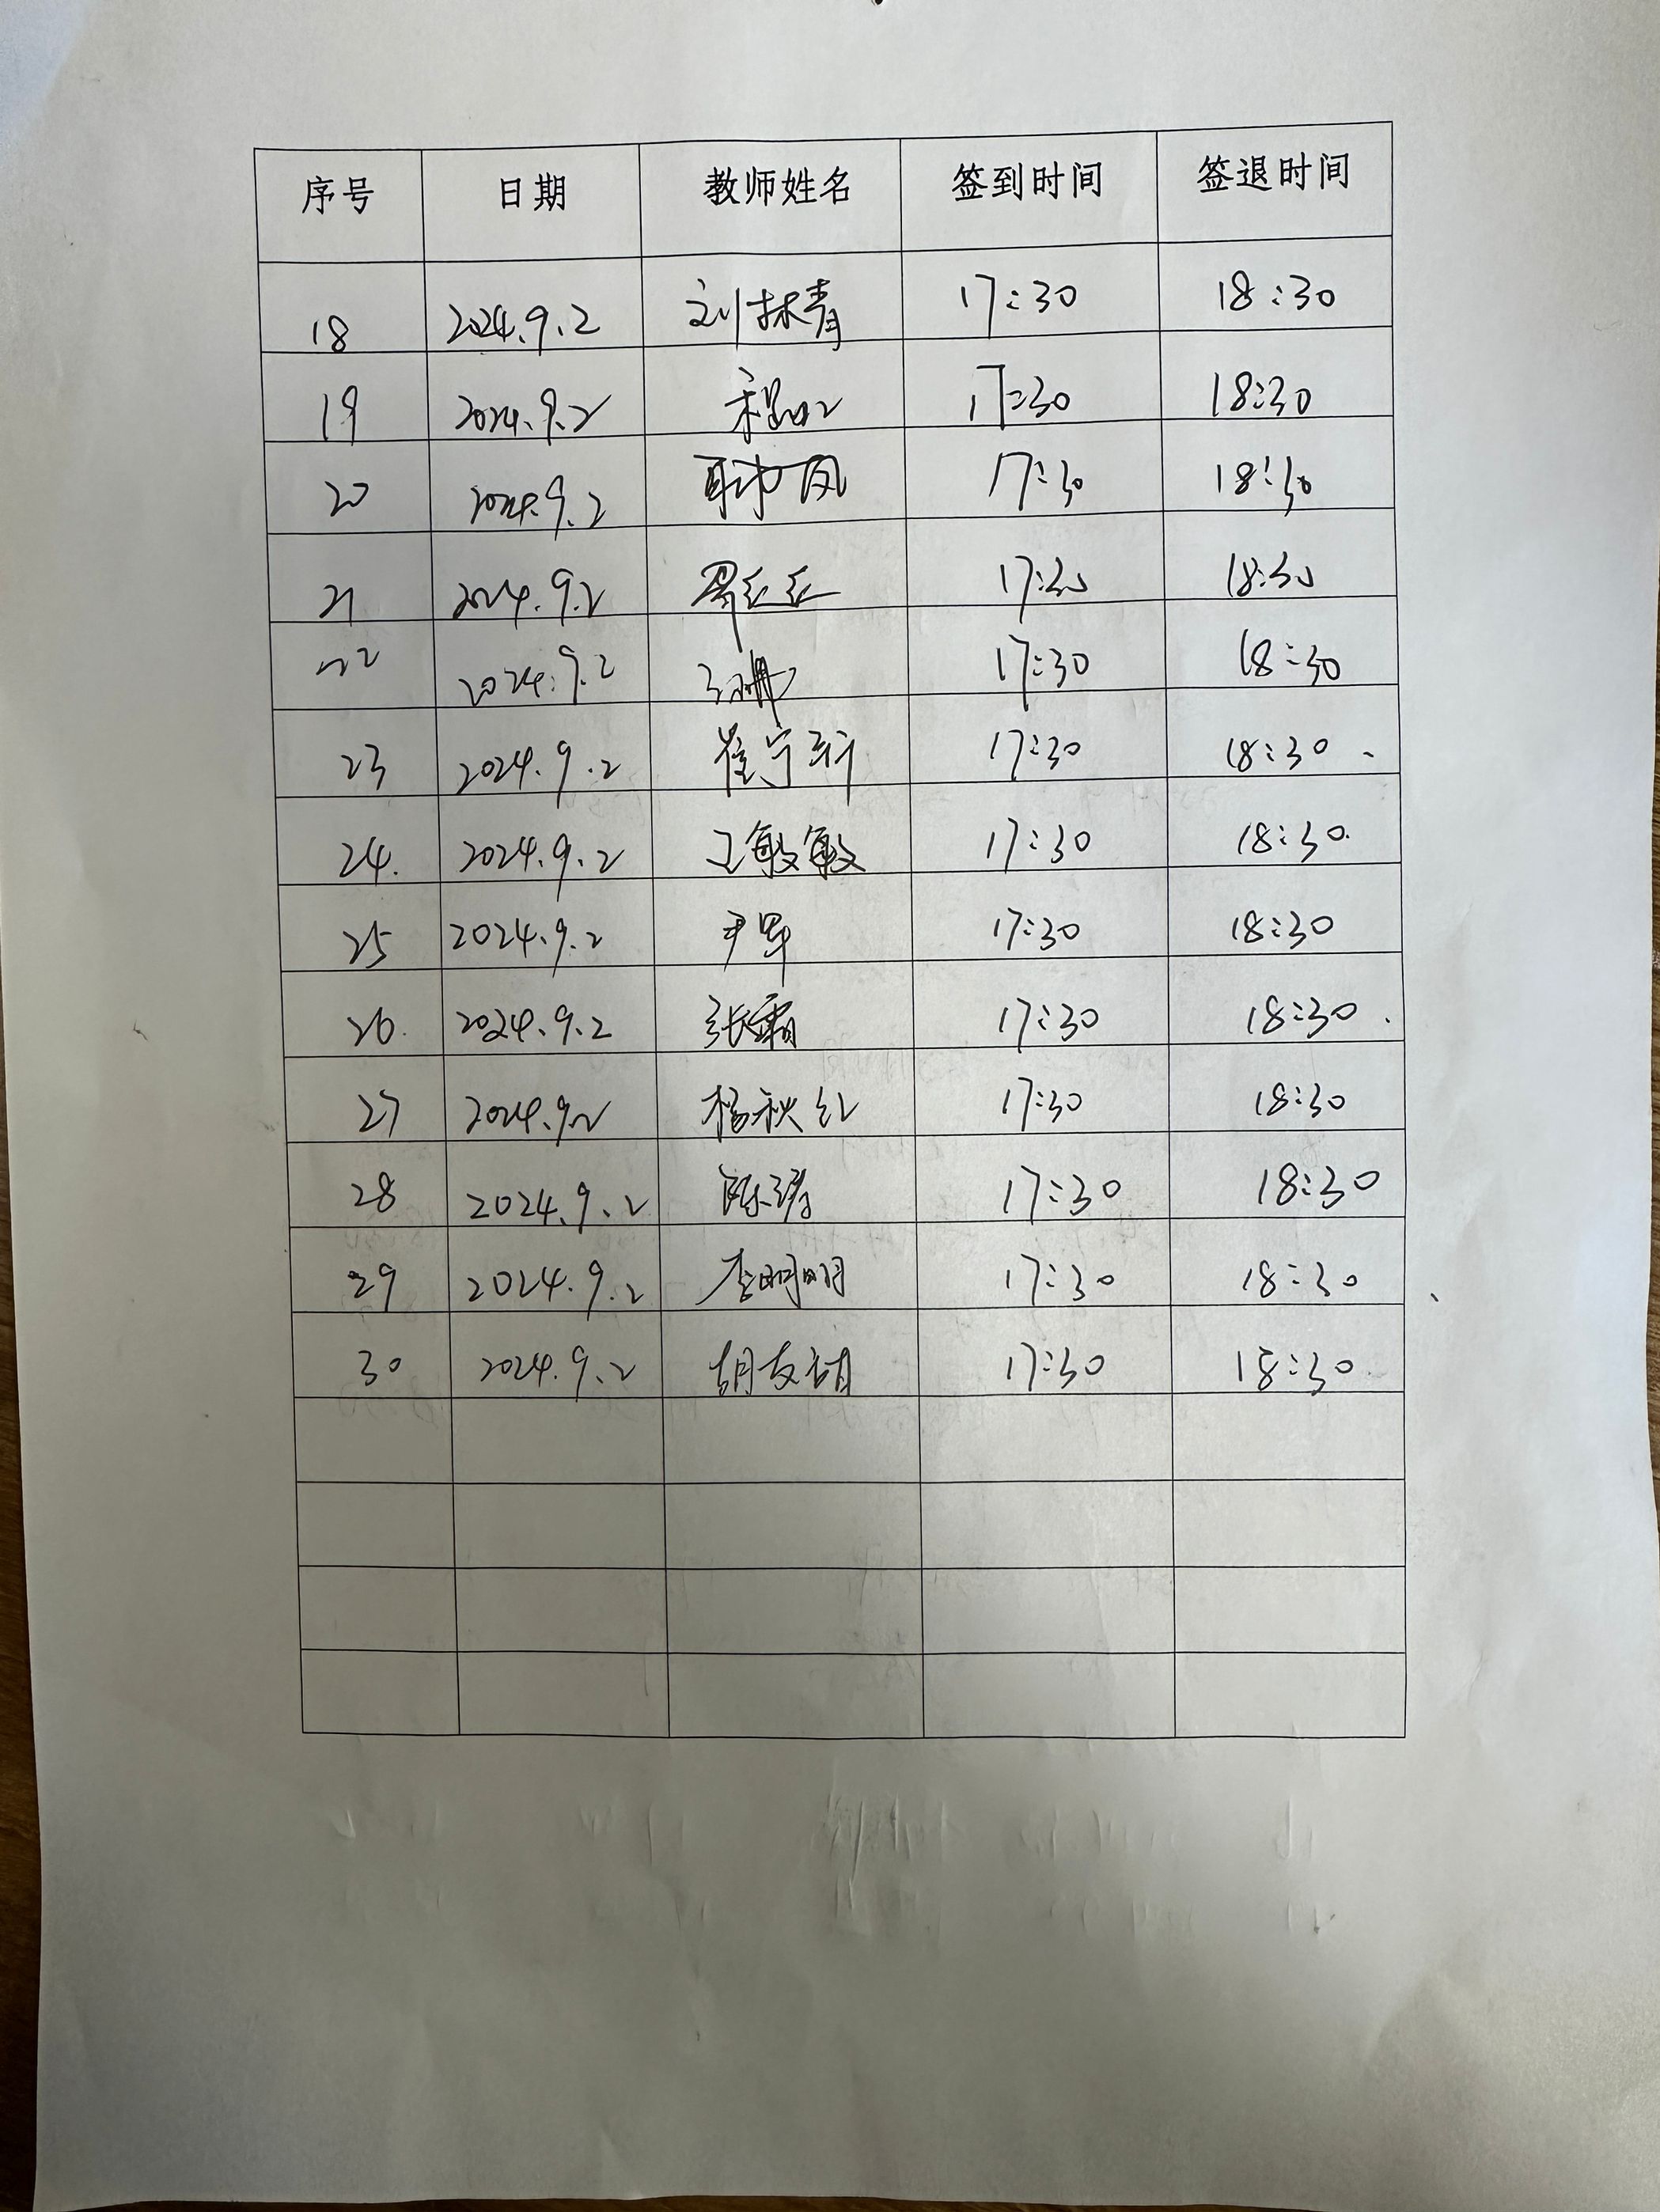 序号 日期 教师姓名 签到时间 签退时间
18 2024.9.2 刘林青 17:30 18:30
19 2024.9.2 17:30 18:30
20 2024.9.2 17:30 18:30
21 2024.9.2 17:30 18:30
22 2024.9.2 17:30 18:30
23 2024.9.2 17:30 18:30
24. 2024.9.2 王敏敏 17:30 18:30
25 2024.9.2 尹军 17:30 18:30
26. 2024.9.2 张霜 17:30 18:30
27 2024.9.2 杨秋红 17:30 18:30
28 2024.9.2 17:30 18:30
29 2024.9.2 李明明 17:30 18:30
30 2024.9.2 17:30 18:30